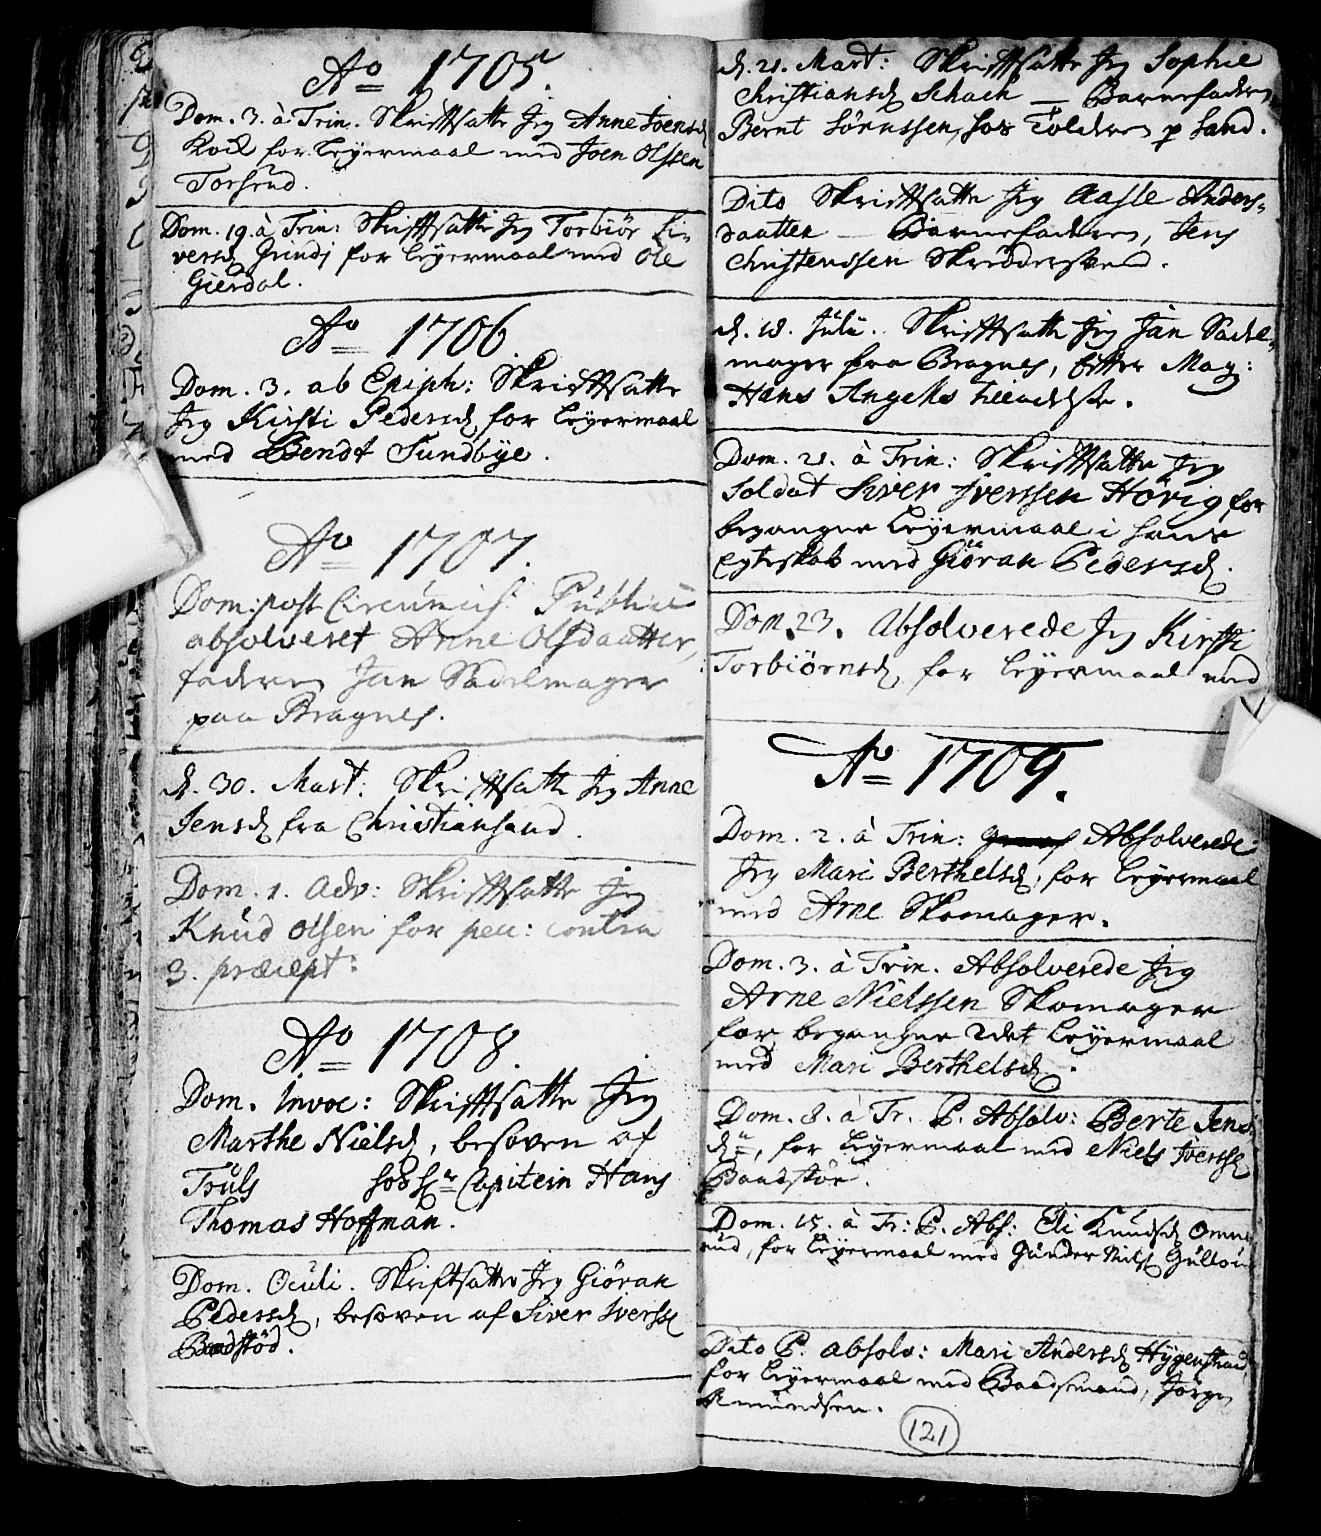 Aō 1705.
Dom. 3. à Trin. Skrifftsatte Jeg Anne Joensd
Kock for Leyermaal med Joen Olssen
Torsrud.
Dom. 19. à Trin: Skrifftsatte Jeg Torbiör Ei-
versd Grindj for Leyermaal med Ole
Gierdal.
Aō 1706
Dom. 3. ab Epiph: Skrifftsatte
Jeg Kirsti Pedersd for Leyermaal
med Bendt Sundbye.
Aō 1707.
Dom: post Circumcis: Publicè
absolveret Anne Olsdaatter,
faderen Jan Sadelmager
paa Bragnes.
d. 30. Mart: Skrifftsatte Jeg Anne
Jensd fra Christiansand.
Dom. 1. Adv: Skrifftsatte Jeg
Knud Olsen for pecc: contra
3. præcept:
Aō 1708.
Dom. Invoc: Skrifftsatte Jeg
Marthe Nielsd, besoven af
Truls hos Sr Capitein Hans
Thomas Hoffman.
Dom. Oculi. Skriftsatte Jeg Giöran
Pedersd, besoven af Siver Iverss
Baadstöd.
d. 21. Mart: Skrifftsatte Jeg Sophie
Christiansd Schach — Barnefaderen
Bernt Sörnssen, hos Tolderen p Sand.
Dito Skrifftsatte Jeg Aasle Anders-
daatter — Barnefaderen, Jens
Christenssen Skrædersvend.
d. 18. Julii. Skrifftsatte Jeg Jan Sadel-
mager fra Bragnes, efter Mag:
Hans Angells
Dom. 21. à Trin: Skrifftsatte Jeg
Soldat Siver Iverssen Hövig for
begangne Leyermaal i hans
Egteskab med Giöran Pedersd.
Dom. 23. Absolverede Jeg Kirsti
Torbiörnsd, for Leyermaal med
Aō 1709.
Dom. 2. à Trin: Absolverede
Jeg Mari Berthelsd, for Leyermaal
med Arne Skomager.
Dom. 3. à Trin. Absolverede Jeg
Arne Nielssen Skomager
for begangne 2det Leyermaal
med Mari Berthelsd.
Dom. 8. à Tr. P. Absolv: Berte Jens
for Leyermaal med Niels Joenss
Baadstöe.
Dom. 15. à Tr: P. Abs: Eli Knudsd Omme
rud, for Leyermaal med Gunder Nils
Dito P. absolv: Mari Andersd Hygenstrand
for Leyermaal med Baadsmand, Jörgen
Amundsen.
121